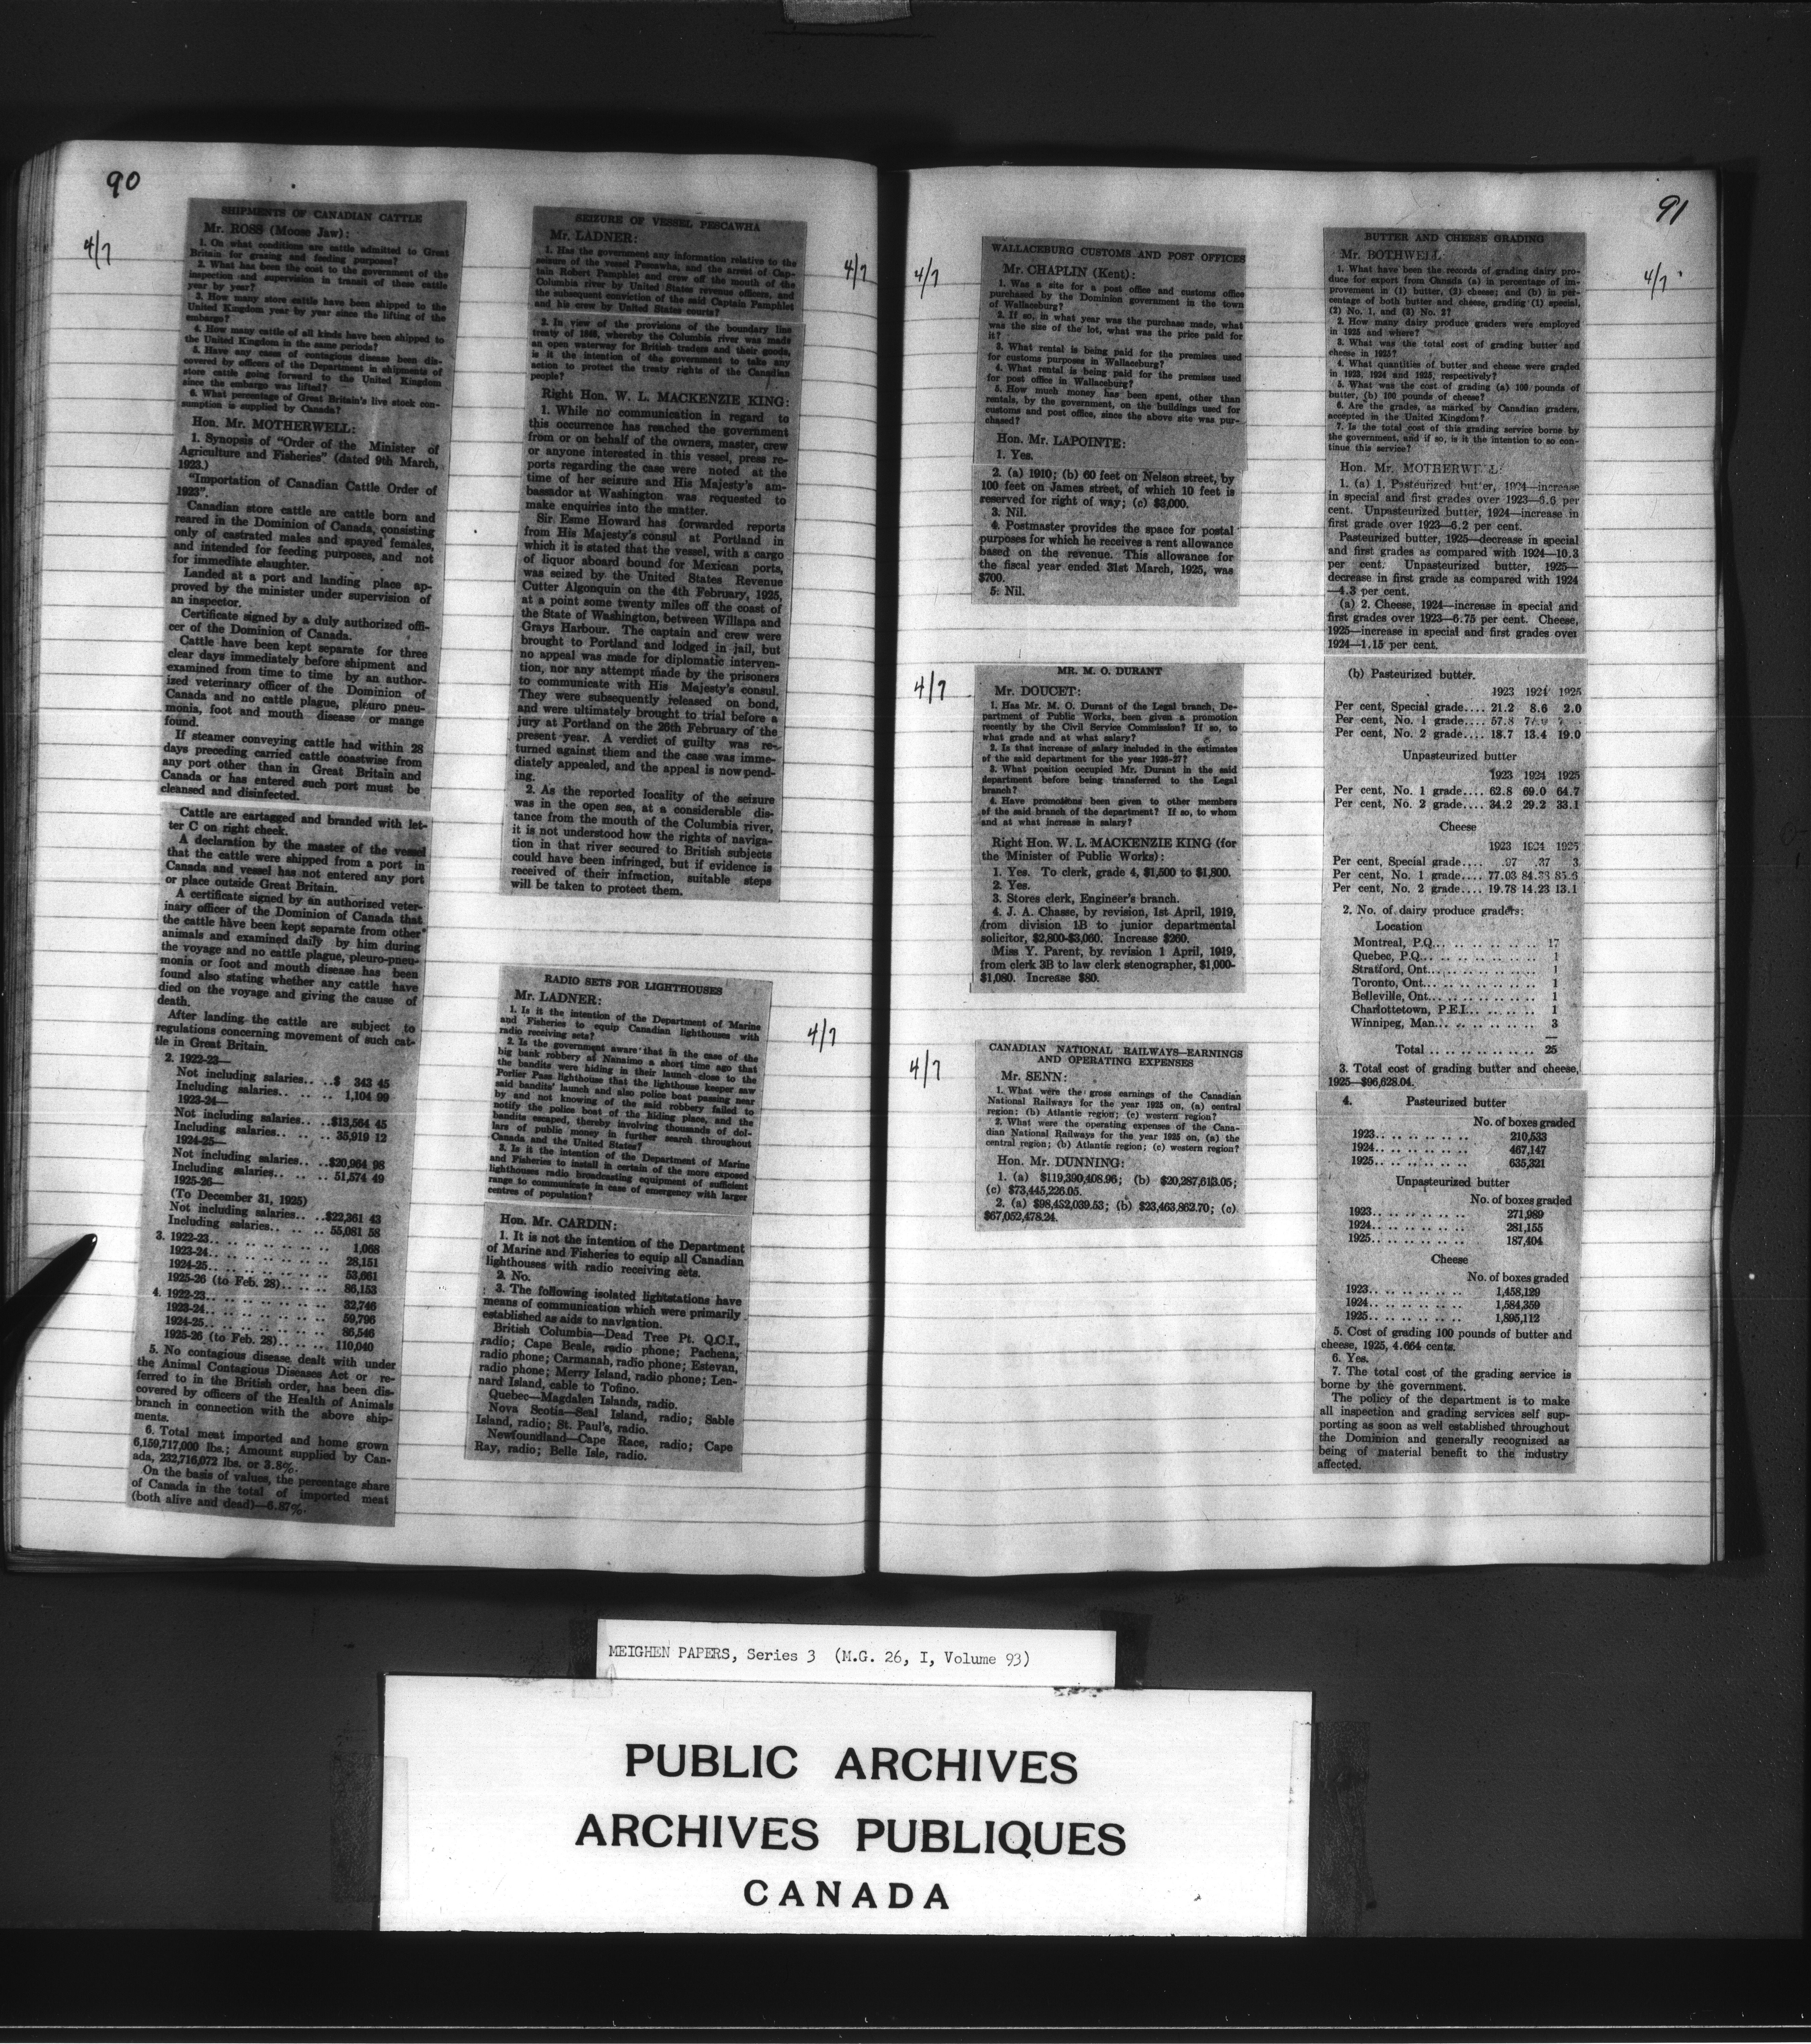 90
4/7
SHIPMENTS OF CANADIAN CATTLE
Mr. ROSS (Moose Jaw):
1. On what conditions are cattle admitted to Great
Britain for grazing and feeding purposes?
2. What has been the cost to the government of the
inspection and supervision in transit of these cattle
year by year?
3. How many store cattle have been shipped to the
United Kingdom year by year since the lifting of the
embargo?
4. How many cattle of all kinds have been shipped to
the United Kingdom in the same periods?
5. Have any cases of contagious disease been dis-
covered by officers of the Department in shipments of
store cattle going forward to the United Kingdom
since the embargo was lifted?
6. What percentage of Great Britain's live stock con-
sumption is supplied by Canada?
Hon. Mr. MOTHERWELL:
1. Synopsis of "Order of the Minister of
Agriculture and Fisheries" (dated 9th March,
1923.)
"Importation of Canadian Cattle Order of
1923".
Canadian store cattle are cattle born and
reared in the Dominion of Canada, consisting
only of castrated males and spayed females,
and intended for feeding purposes, and not
for immediate slaughter.
Landed at a port and landing place ap-
proved by the minister under supervision of
an inspector.
Certificate signed by a duly authorized offi-
cer of the Dominion of Canada.
Cattle have been kept separate for three
clear days immediately before shipment and
examined from time to time by an author-
ized veterinary officer of the Dominion of
Canada and no cattle plague, pleuro pneu-
monia, foot and mouth disease or mange
found.
If steamer conveying cattle had within 28
days preceding carried cattle coastwise from
any port other than in Great Britain and
Canada or has entered such port must be
cleansed and disinfected.
Cattle are eartagged and branded with let-
ter C on right cheek.
A declaration by the master of the vessel
that the cattle were shipped from a port in
Canada and vessel has not entered any port
or place outside Great Britain.
A certificate signed by an authorized veter-
inary officer of the Dominion of Canada that
the cattle have been kept separate from other
animals and examined daily by him during
the voyage and no cattle plague, pleuro-pneu-
monia or foot and mouth disease has been
found also stating whether any cattle have
died on the voyage and giving the cause of
death.
After landing the cattle are subject to
regulations concerning movement of such cat-
tle in Great Britain.
2. 1922-23—
Not including salaries.. ..$ 343 45
Including salaries.. .. .. 1,104 99
1923-24—
Not including salaries.. ..$13,564 45
Including salaries.. .. .. 35,919 12
1924-25—
Not including salaries.. ..$20,964 98
Including salaries.. .. .. 51,574 49
1925-26—
(To December 31, 1925)
Not including salaries.. ..$22,361 43
Including salaries.. .. .. 55,081 58
3. 1922-23.. .. .. .. .. .. .. 1,068
1923-24.. .. .. .. .. .. .. 28,151
1924-25.. .. .. .. .. .. .. 53,661
1925-26 (to Feb. 28).. .. .. 86,153
4. 1922-23.. .. .. .. .. .. .. 32,746
1923-24.. .. .. .. .. .. .. 59,796
1924-25.. .. .. .. .. .. .. 86,546
1925-26 (to Feb. 28).. .. .. 110,040
5. No contagious disease dealt with under
the Animal Contagious Diseases Act or re-
ferred to in the British order, has been dis-
covered by officers of the Health of Animals
branch in connection with the above ship-
ments.
6. Total meat imported and home grown
6,159,717,000 lbs.; Amount supplied by Can-
ada, 232,716,072 lbs. or 3.8%.
On the basis of values, the percentage share
of Canada in the total of imported meat
(both alive and dead)—6.87%.
4/7
SEIZURE OF VESSEL PESCAWHA
Mr. LADNER:
1. Has the government any information relative to the
seizure of the vessel Pescawha, and the arrest of Cap-
tain Robert Pamphlet and crew off the mouth of the
Columbia river by United States revenue officers, and
the subsequent conviction of the said Captain Pamphlet
and his crew by United States courts?
2. In view of the provisions of the boundary line
treaty of 1846, whereby the Columbia river was made
an open waterway for British traders and their goods,
is it the intention of the government to take any
action to protect the treaty rights of the Canadian
people?
Right Hon. W. L. MACKENZIE KING:
1. While no communication in regard to
this occurrence has reached the government
from or on behalf of the owners, master, crew
or anyone interested in this vessel, press re-
ports regarding the case were noted at the
time of her seizure and His Majesty's am-
bassador at Washington was requested to
make enquiries into the matter.
Sir Esme Howard has forwarded reports
from His Majesty's consul at Portland in
which it is stated that the vessel, with a cargo
of liquor aboard bound for Mexican ports,
was seized by the United States Revenue
Cutter Algonquin on the 4th February, 1925,
at a point some twenty miles off the coast of
the State of Washington, between Willapa and
Grays Harbour. The captain and crew were
brought to Portland and lodged in jail, but
no appeal was made for diplomatic interven-
tion, nor any attempt made by the prisoners
to communicate with His Majesty's consul.
They were subsequently released on bond,
and were ultimately brought to trial before a
jury at Portland on the 26th February of the
present year. A verdict of guilty was re-
turned against them and the case was imme-
diately appealed, and the appeal is now pend-
ing.
2. As the reported locality of the seizure
was in the open sea, at a considerable dis-
tance from the mouth of the Columbia river,
it is not understood how the rights of naviga-
tion in that river secured to British subjects
could have been infringed, but if evidence is
received of their infraction, suitable steps
will be taken to protect them.
4/7
RADIO SETS FOR LIGHTHOUSES
Mr. LADNER:
1. Is it the intention of the Department of Marine
and Fisheries to equip Canadian lighthouses with
radio receiving sets?
2. Is the government aware that in the case of the
big bank robbery at Nanaimo a short time ago that
the bandits were hiding in their launch close to the
Porlier Pass lighthouse that the lighthouse keeper saw
said bandits' launch and also police boat passing near
by and not knowing of the said robbery failed to
notify the police boat of the hiding place, and the
bandits escaped, thereby involving thousands of dol-
lars of public money in further search throughout
Canada and the United States?
3. Is it the intention of the Department of Marine
and Fisheries to install in certain of the more exposed
lighthouses radio broadcasting equipment of sufficient
range to communicate in case of emergency with larger
centres of population?
Hon. Mr. CARDIN:
1. It is not the intention of the Department
of Marine and Fisheries to equip all Canadian
lighthouses with radio receiving sets.
2. No.
3. The following isolated lightstations have
means of communication which were primarily
established as aids to navigation.
British Columbia—Dead Tree Pt. Q.C.I.,
radio; Cape Beale, radio phone; Pachena,
radio phone; Carmanah, radio phone; Estevan,
radio phone; Merry Island, radio phone; Len-
nard Island, cable to Tofino.
Quebec—Magdalen Islands, radio.
Nova Scotia—Seal Island, radio; Sable
Island, radio; St. Paul's, radio.
Newfoundland—Cape Race, radio; Cape
Ray, radio; Belle Isle, radio.
91
4/7
WALLACEBURG CUSTOMS AND POST OFFICES
Mr. CHAPLIN (Kent):
1. Was a site for a post office and customs office
purchased by the Dominion government in the town
of Wallaceburg?
2. If so, in what year was the purchase made, what
was the size of the lot, what was the price paid for
it?
3. What rental is being paid for the premises used
for customs purposes in Wallaceburg?
4. What rental is being paid for the premises used
for post office in Wallaceburg?
5. How much money has been spent, other than
rentals, by the government, on the buildings used for
customs and post office, since the above site was pur-
chased?
Hon. Mr. LAPOINTE:
1. Yes.
2. (a) 1910; (b) 60 feet on Nelson street, by
100 feet on James street, of which 10 feet is
reserved for right of way; (c) $3,000.
3. Nil.
4. Postmaster provides the space for postal
purposes for which he receives a rent allowance
based on the revenue. This allowance for
the fiscal year ended 31st March, 1925, was
$700.
5. Nil.
4/7
MR. M. O. DURANT
Mr. DOUCET:
1. Has Mr. M. O. Durant of the Legal branch, De-
partment of Public Works, been given a promotion
recently by the Civil Service Commission? If so, to
what grade and at what salary?
2. Is that increase of salary included in the estimates
of the said department for the year 1926-27?
3. What position occupied Mr. Durant in the said
department before being transferred to the Legal
branch?
4. Have promotions been given to other members
of the said branch of the department? If so, to whom
and at what increase in salary?
Right Hon. W. L. MACKENZIE KING (for
the Minister of Public Works):
1. Yes. To clerk, grade 4, $1,500 to $1,800.
2. Yes.
3. Stores clerk, Engineer's branch.
4. J. A. Chasse, by revision, 1st April, 1919,
from division 1B to junior departmental
solicitor, $2,800-$3,060. Increase $260.
Miss Y. Parent, by revision 1 April, 1919,
from clerk 3B to law clerk stenographer, $1,000-
$1,080. Increase $80.
4/7
CANADIAN NATIONAL RAILWAYS—EARNINGS
AND OPERATING EXPENSES
Mr. SENN:
1. What were the gross earnings of the Canadian
National Railways for the year 1925 on, (a) central
region; (b) Atlantic region; (c) western region?
2. What were the operating expenses of the Cana-
dian National Railways for the year 1925 on, (a) the
central region; (b) Atlantic region; (c) western region?
Hon. Mr. DUNNING:
1. (a) $119,390,408.96; (b) $20,287,613.05;
(c) $73,445,226.05.
2. (a) $98,452,039.53; (b) $23,463,862.70; (c)
$67,052,478.24.
4/7
BUTTER AND CHEESE GRADING
Mr. BOTHWELL
1. What have been the records of grading dairy pro-
duce for export from Canada (a) in percentage of im-
provement in (1) butter, (2) cheese; and (b) in per-
centage of both butter and cheese, grading (1) special,
(2) No. 1, and (3) No. 2?
2. How many dairy produce graders were employed
in 1925 and where?
3. What was the total cost of grading butter and
cheese in 1925?
4. What quantities of butter and cheese were graded
in 1923, 1924 and 1925, respectively?
5. What was the cost of grading (a) 100 pounds of
butter, (b) 100 pounds of cheese?
6. Are the grades, as marked by Canadian graders,
accepted in the United Kingdom?
7. Is the total cost of this grading service borne by
the government, and if so, is it the intention to so con-
tinue this service?
Hon. Mr. MOTHERWELL:
1. (a) 1. Pasteurized butter, 1924—increase
in special and first grades over 1923—6.6 per
cent. Unpasteurized butter, 1924—increase in
first grade over 1923—6.2 per cent.
Pasteurized butter, 1925—decrease in special
and first grades as compared with 1924—10.3
per cent. Unpasteurized butter, 1925—
decrease in first grade as compared with 1924
—4.3 per cent.
(a) 2. Cheese, 1924—increase in special and
first grades over 1923—6.75 per cent. Cheese,
1925—increase in special and first grades over
1924—1.15 per cent.
(b) Pasteurized butter.
1923 1924 1925
Per cent, Special grade.... 21.2 8.6 2.0
Per cent, No. 1 grade.... 57.8
Per cent, No. 2 grade.... 18.7 13.4 19.0
Unpasteurized butter
1923 1924 1925
Per cent, No. 1 grade.... 62.8 69.0 64.7
Per cent, No. 2 grade.... 34.2 29.2 33.1
Cheese
1923 1924 1925
Per cent, Special grade.... .97 .37
Per cent, No. 1 grade.... 77.03
Per cent, No. 2 grade.... 19.78 14.23 13.1
2. No. of dairy produce graders:
Location
Montreal, P.Q... .. .. .. .. .. 17
Quebec, P.Q... .. .. .. .. .. 1
Stratford, Ont... .. .. .. .. .. 1
Toronto, Ont... .. .. .. .. .. 1
Belleville, Ont... .. .. .. .. .. 1
Charlottetown, P.E.I... .. .. .. 1
Winnipeg, Man... .. .. .. .. .. 3
Total .. .. .. .. .. .. .. 25
3. Total cost of grading butter and cheese,
1925—$96,628.04.
4. Pasteurized butter
No. of boxes graded
1923.. .. .. .. .. .. 210,533
1924.. .. .. .. .. .. 467,147
1925.. .. .. .. .. .. 635,321
Unpasteurized butter
No. of boxes graded
1923.. .. .. .. .. .. 271,989
1924.. .. .. .. .. .. 281,155
1925.. .. .. .. .. .. 187,404
Cheese
No. of boxes graded
1923.. .. .. .. .. .. 1,458,129
1924.. .. .. .. .. .. 1,584,359
1925.. .. .. .. .. .. 1,895,112
5. Cost of grading 100 pounds of butter and
cheese, 1925, 4.664 cents.
6. Yes.
7. The total cost of the grading service is
borne by the government.
The policy of the department is to make
all inspection and grading services self sup-
porting as soon as well established throughout
the Dominion and generally recognized as
being of material benefit to the industry
affected.
MEIGHEN PAPERS, Series 3 (M.G. 26, I, Volume 93)
PUBLIC ARCHIVES
ARCHIVES PUBLIQUES
CANADA